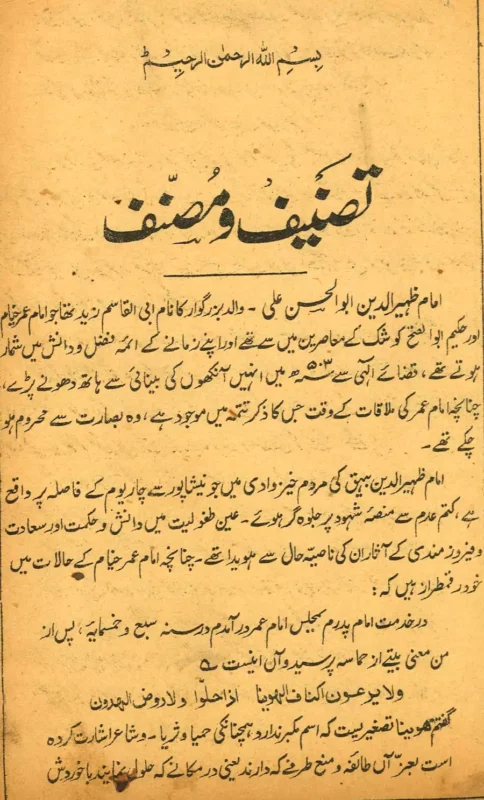 بِسْمِ اللہ الرحمٰن الرحیم
تصنیف و مصنّف
امام ظہیر الدین ابو الحسن علی ۔ والد بزرگوار کا نام ابی القاسم زید تھا جو امام عمر خیام
اور حکیم ابو الفتح کوشک کے معاصرین میں سے تھے اور اپنے زمانے کے ائمہ فضل و دانش میں شمار
ہوتے تھے ، قضائے الٰہی سے سنہ ۵۰۳ھ میں انہیں آنکھوں کی بینائی سے ہاتھ دھونے پڑے ،
چنانچہ امام عمر کی ملاقات کے وقت جس کا ذکر تتمہ میں موجود ہے ، وہ بصارت سے محروم ہو
چکے تھے ۔
امام ظہیر الدین بیہق کی مردم خیز وادی میں جو نیشاپور سے چار یوم کے فاصلہ پر واقع
ہے ، کتم عدم سے منصۂ شہود پر جلوہ گر ہوئے ۔ عین طفولیت میں دانش و حکمت اور سعادت
و فیروز مندی کے آثار ان کی ناصیۂ حال سے ہویدا تھے ۔ چنانچہ امام عمر خیام کے حالات میں
خود رقمطراز ہیں کہ :
در خدمت امام پدرم بمجلس امام عمر درآمدم در سنہ سبع و خمسمایۃ ، پس از
من معنی بیتے از حماسہ پرسید و آں اینست ہ
ولا یرعون اکناف الہوینا اذا حلّوا ولا روض الہدون
گفتم ہوینا تصغیریست کہ اسم مکبر ندارد ہمچنانکہ حمیا و ثریا ۔ و شاعر اشارت کردہ
است بعزّ آں طائفہ و منع طرفے کہ دارند یعنی در مکانے کہ حلول نمایند باخوردش